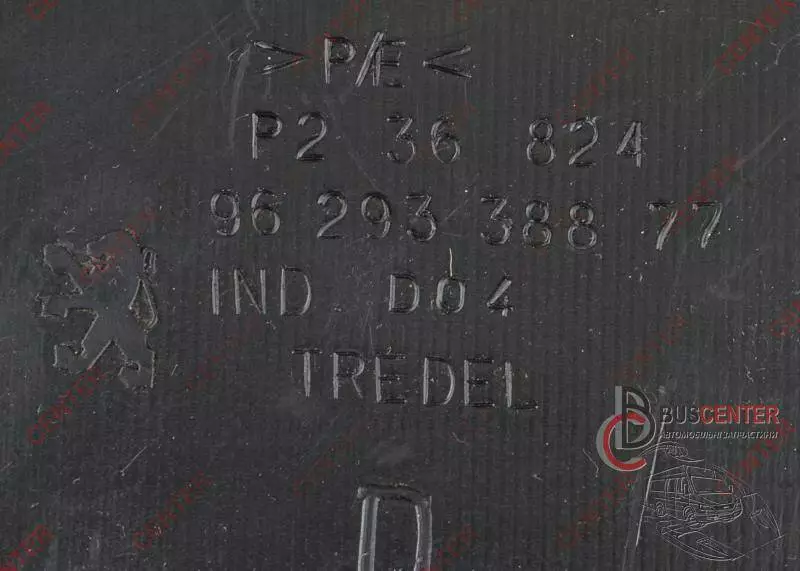 >P/E<
P2 36 824
96 293 388 77
IND D04
TREDEL
D
BUSCENTER
АВТОМОБІЛЬНІ ЗАПЧАСТИНИ